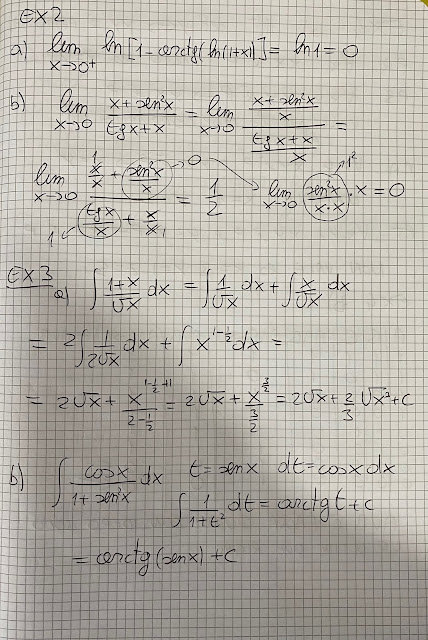 EX2
a) lim x→0⁺ ln[1-arctg(ln(1+x))] = ln1 = 0
b) lim x→0 (x+sen²x)/(tgx+x) = lim x→0 ((x+sen²x)/x)/((tgx+x)/x) =
lim x→0 (x/x + sen²x/x)/(tgx/x + x/x) = 1/2 lim x→0 sen²x/(x·x) · x = 0
EX3
a) ∫ (1+x)/√x dx = ∫ 1/√x dx + ∫ x/√x dx
= 2∫ 1/(2√x) dx + ∫ x^(1-1/2) dx =
= 2√x + x^(1-1/2+1)/(2-1/2) = 2√x + x^(3/2)/(3/2) = 2√x + 2/3 √x³ + c
b) ∫ cosx/(1+sen²x) dx t=senx dt=cosx dx
∫ 1/(1+t²) dt = arctg t + c
= arctg(senx) + c